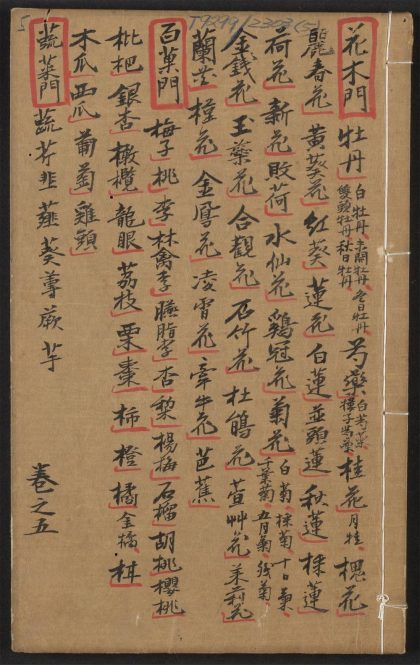 T9299/2303(5)
5
花木門 牡丹 白牡丹 未開牡丹 冬日牡丹 雙頭牡丹 秋日牡丹 芍藥 白芍藥 桂花 月桂 槐花
麗春花 黃葵花 紅葵 蓮花 白蓮 並頭蓮 秋蓮 採蓮
荷花 新花 敗荷 水仙花 鷄冠花 菊花 白菊 採菊 十日菊 千葉菊 五月菊 殘菊
金錢花 玉蘂花 合觀花 石竹花 杜鵑花 萱艸花
蘭花 槿花 金鳳花 凌霄花 牽牛花 芭蕉
百菓門 梅子 桃 李 林禽 李 臙脂李 杏 梨 楊梅 石榴 胡桃 櫻桃
枇杷 銀杏 橄欖 龍眼 荔枝 栗 棗 柿 橙 橘 金橘
木瓜 西瓜 葡萄 雞頭
蔬菜門 蔬 芥 韭 薤 葵 蓴 蕨 芋
卷之五